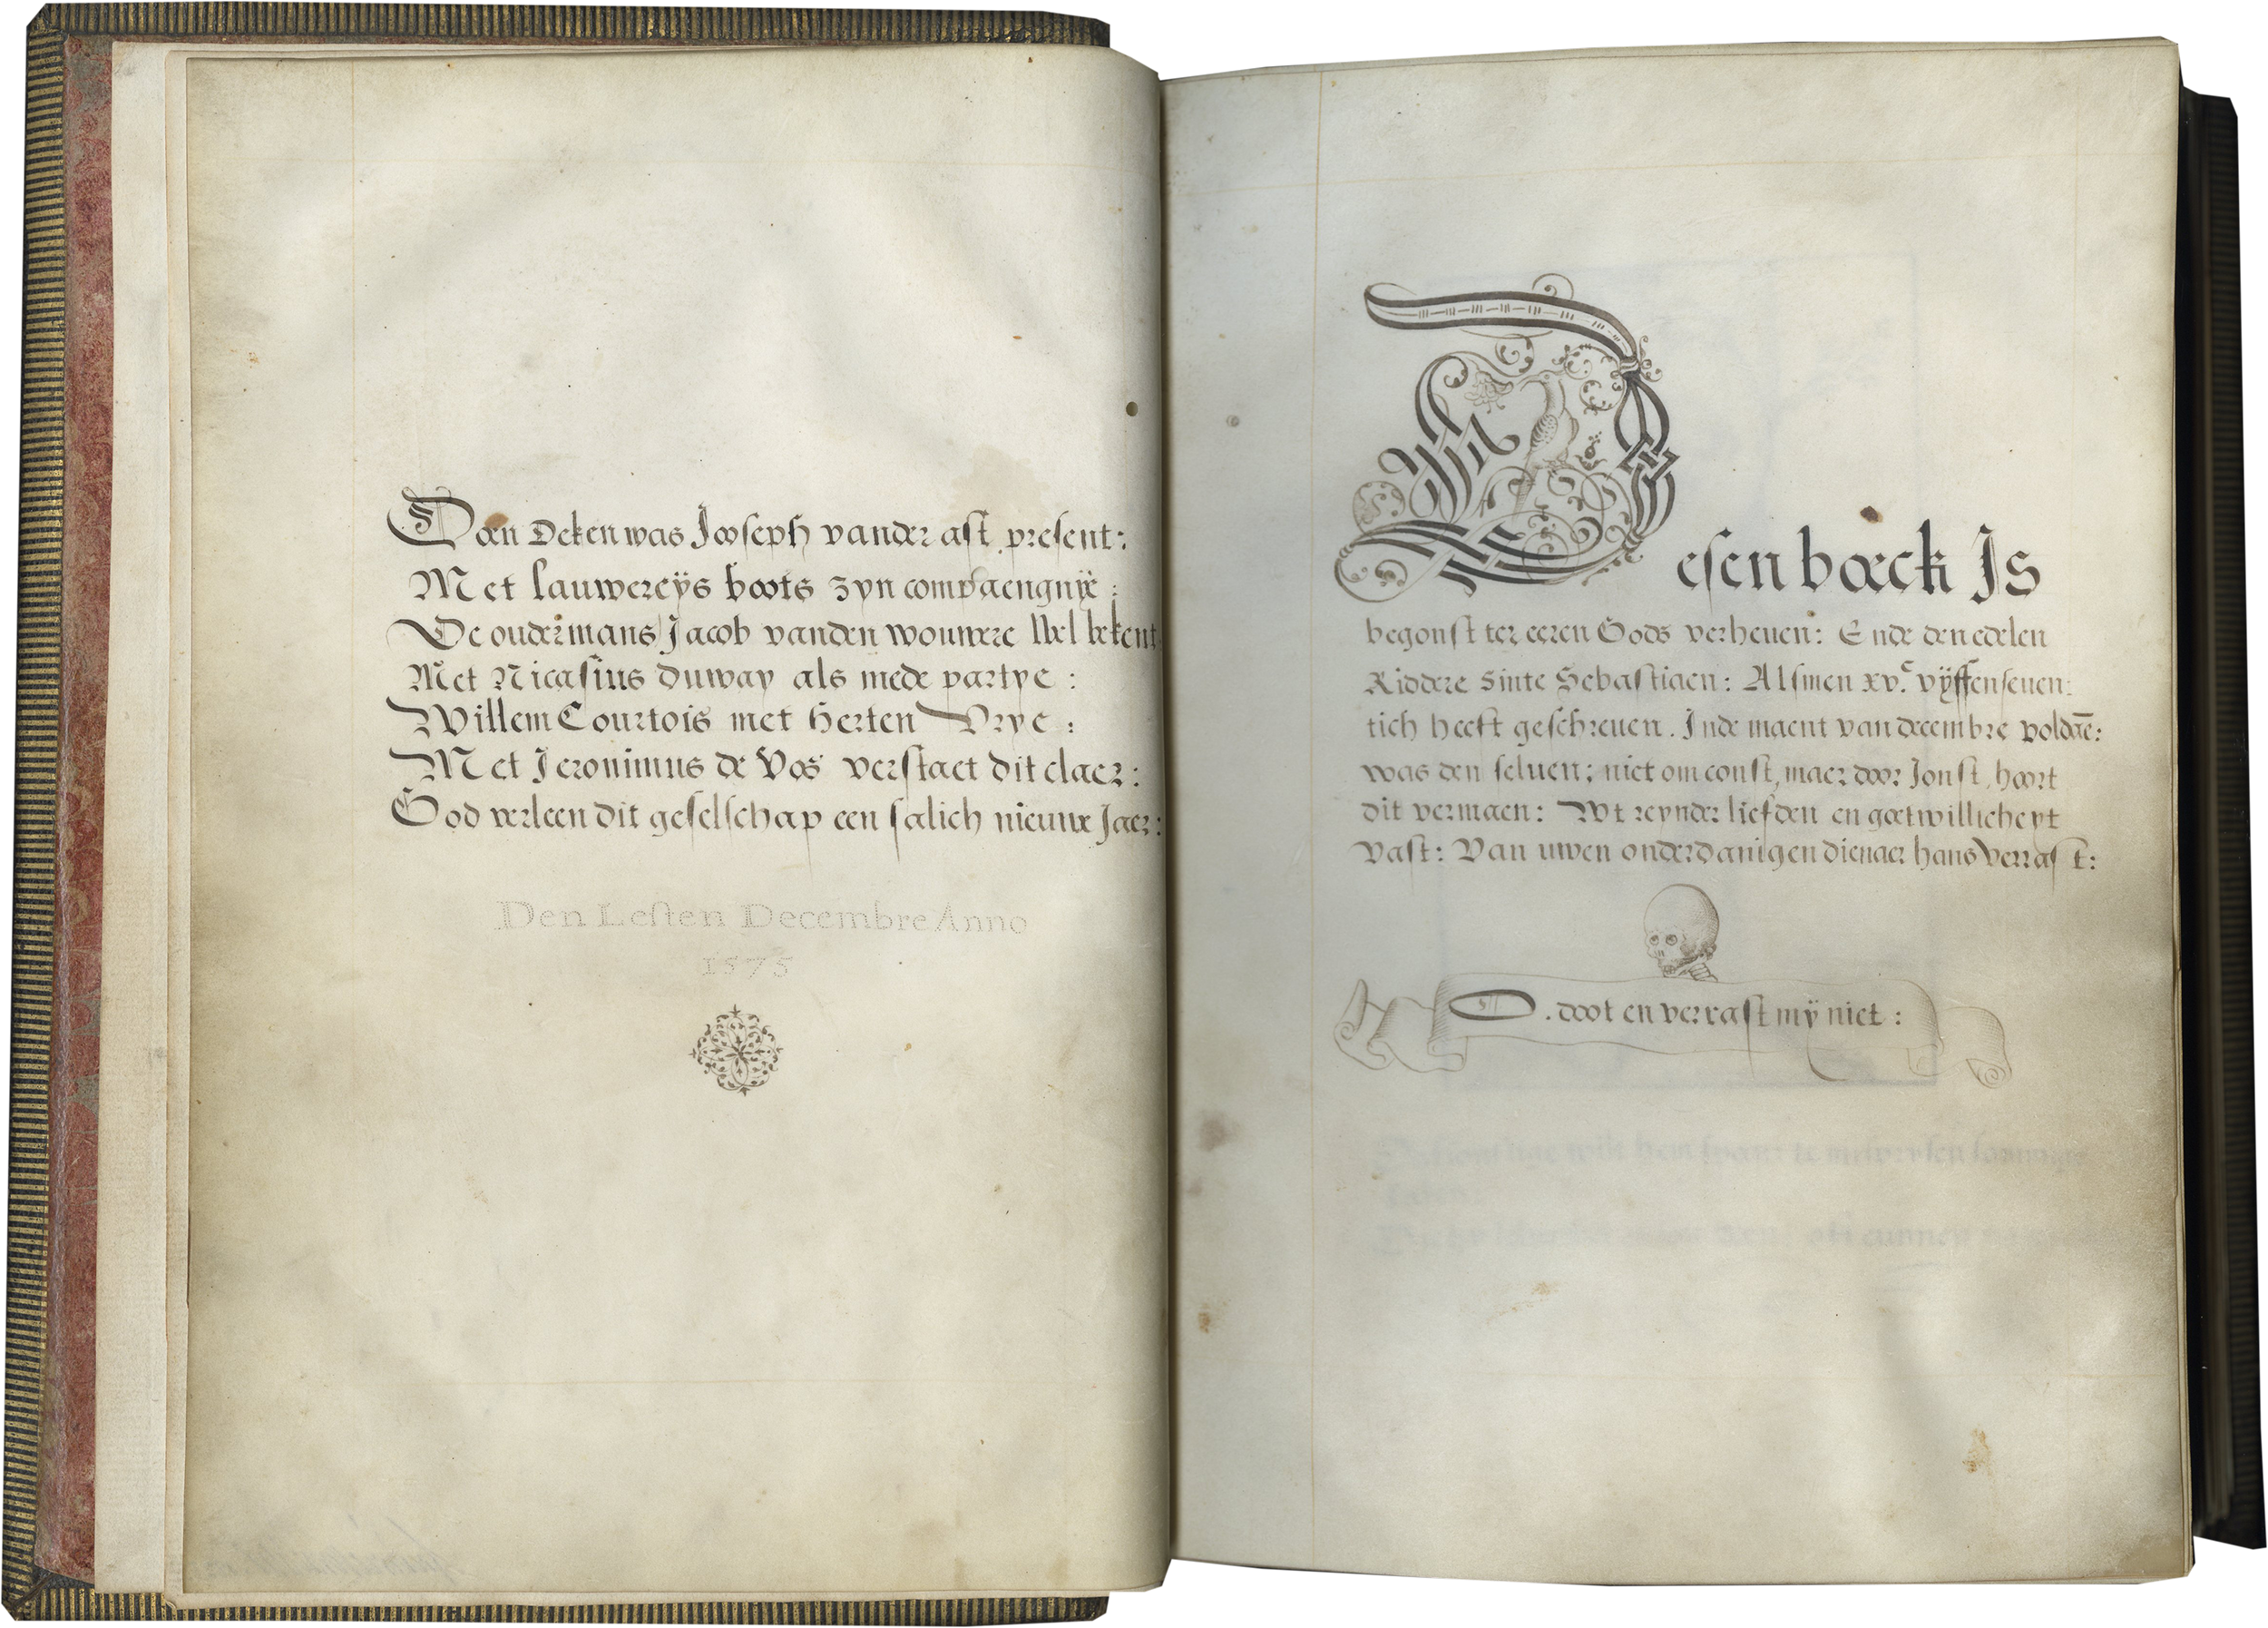 Doen Deken was Jooseph vander ast present:
Met lauwereÿs boots zyn compaengnÿe:
De oudermans Jacob vanden wouwere Wel bekent
Met Nicasius duway als mede partye:
Willem Courtois met herten Vrye:
Met Jeronimus de Vos verstaet dit claer:
God verleen dit geselschap een salich nieuwe Jaer:
Den Lesten Decembre Anno
1575
Desen boeck Is
begonst ter eeren Gods verheuen: Ende den edelen
Riddere Sinte Sebastiaen: Alsmen xv.c vÿffenseuen:
tich heeft geschreuen. Inde maent van decembre voldaē:
was den seluen: niet om const, maer door Jonst, hoort
dit vermaen: Wt reynder liefden en goetwillicheyt
Vast: Van uwen onderdanigen dienaer hans Verrast:
O. doot en verrast mÿ niet: